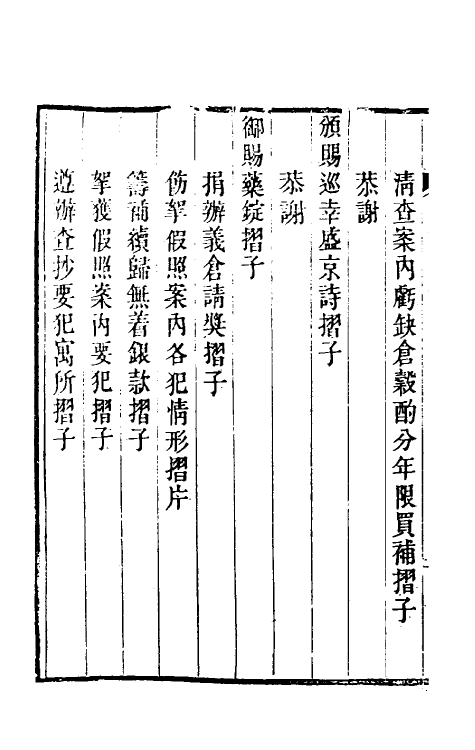 清查案內虧缺倉穀酌分年限買補摺子
恭謝
頒賜巡幸盛京詩摺子
恭謝
御賜藥錠摺子
捐辦義倉請奬摺子
飭拏假照案內各犯情形摺片
籌補續歸無着銀款摺子
拏獲假照案內要犯摺子
遵辦查抄要犯寓所摺子